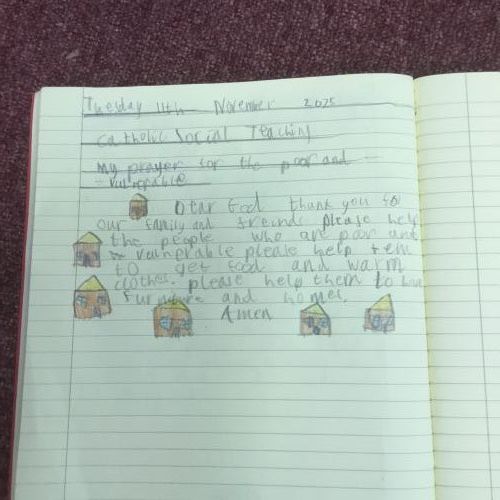 Tuesday 11th November 2025
Catholic Social Teaching
My prayer for the poor and
vulnerable
Dear God thank you fo
our family and freinds please help
the people who are poor and
vulnerable please help tem
to get food and warm
clothes. please help them to have
furniture and homes.
Amen